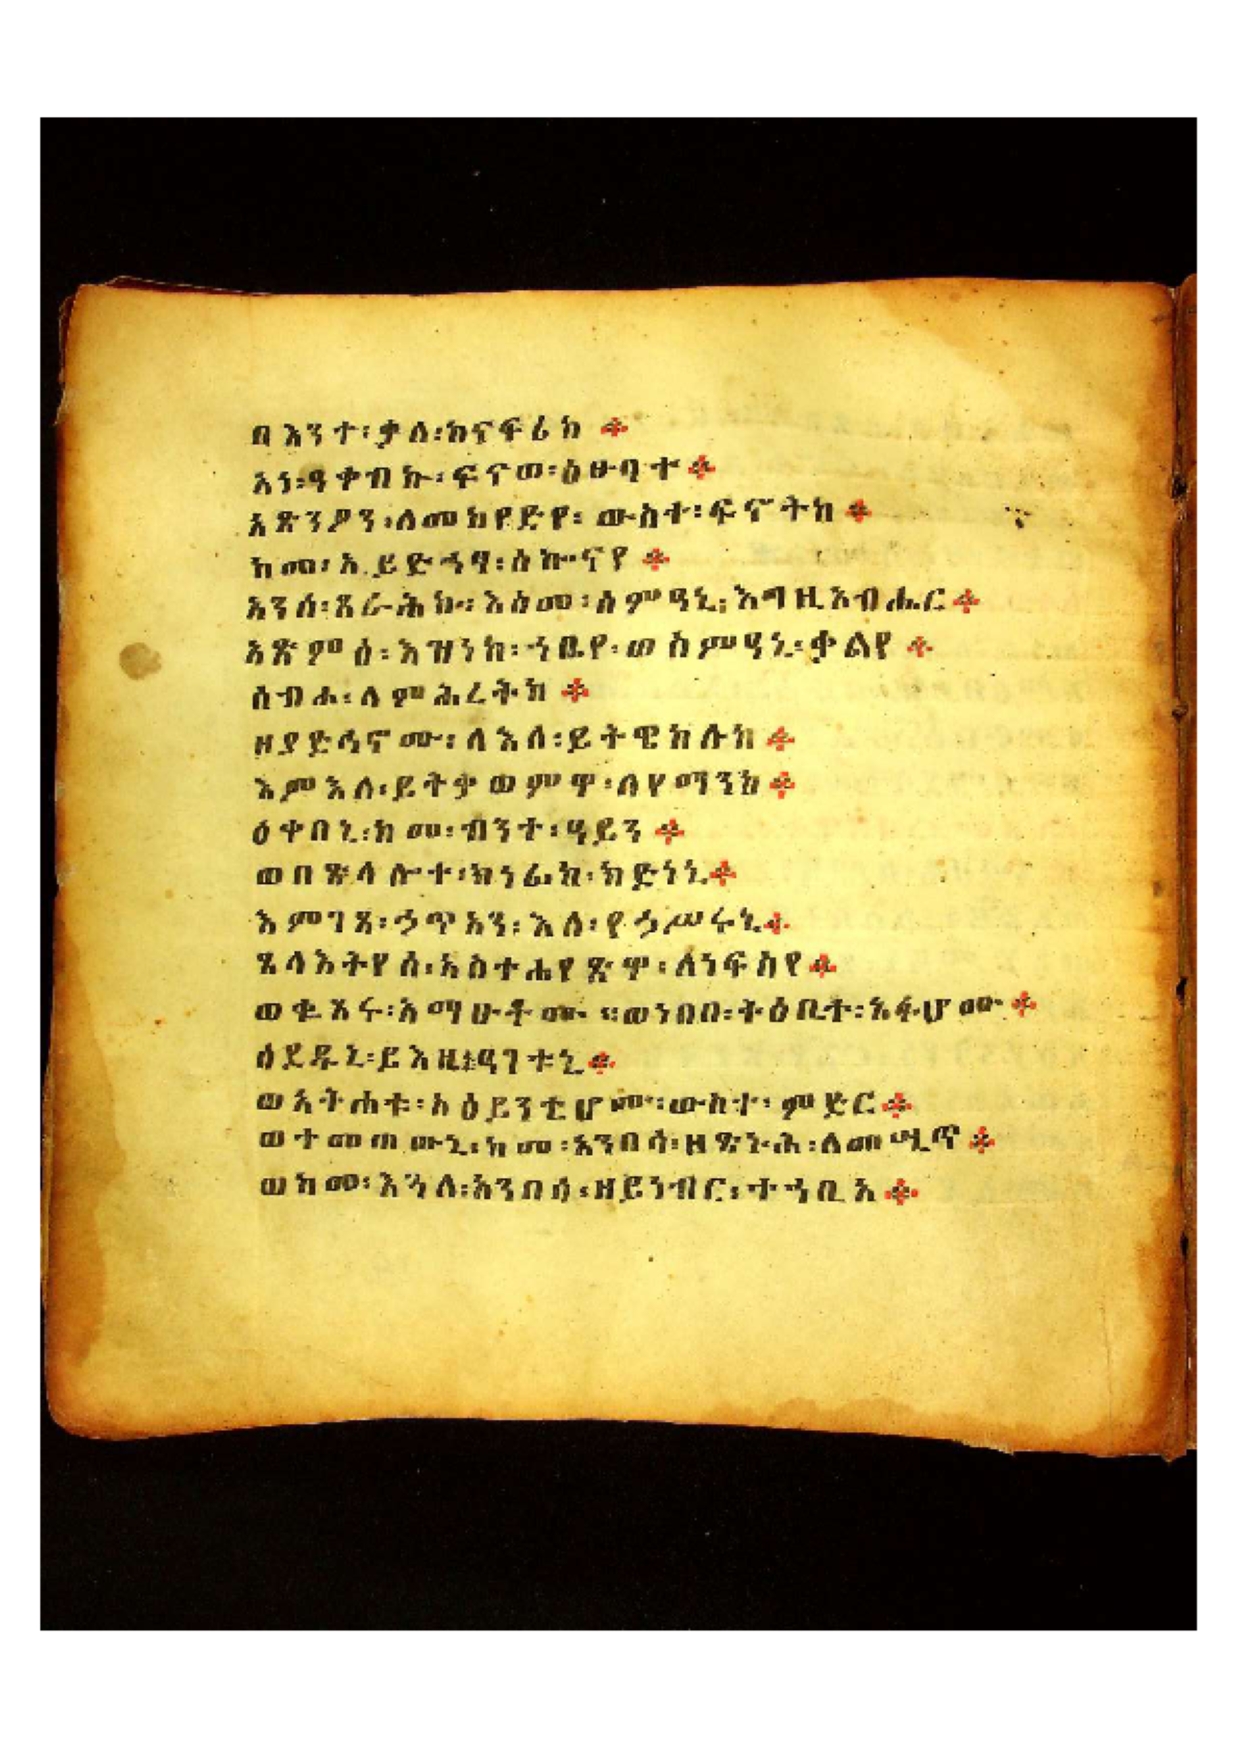 በእንተ፡ቃለ፡ከናፍሪከ ።
አነ፡ዓቀብኩ፡ፍናወ፡ዕፁባተ ።
አጽንዖን፡ለመከየድየ፡ ውስተ፡ፍኖትከ ።
ከመ፡ኢይድኃፃ፡ሰኰናየ ።
አንሰ፡ጸራሕኩ፡ እስመ፡ሰምዓኒ፡እግዚአብሔር ።
አጽምዕ፡እዝነከ፡ኀቤየ፡ወስምዓኒ፡ቃልየ ።
ሰብሐ፡ለምሕረትከ ።
ዘያድኅኖሙ፡ለእለ፡ይትዌከሉከ ።
እምእለ፡ይትቃወምዋ፡ለየማንከ ።
ዕቀበኒ፡ከመ፡ብንተ፡ዓይን ።
ወበጽላሎተ፡ክነፊከ፡ክድነኒ ።
እምገጸ፡ኃጥአን፡እለ፡የኃሥሩኒ ።
ጸላእትየሰ፡አስተሐየጽዋ፡ለነፍስየ ።
ወቈጸሩ፡አማሁቶሙ ።ወነበበ፡ትዕቢተ፡አፉሆሙ ።
ሰደዱኒ፡ይእዚ፡ዓገቱኒ ።
ወአትሐቱ፡አዕይንቲሆሙ፡ውስተ፡ ምድር ።
ወተመጠውኒ፡ከመ፡አንበሳ፡ዘጽኑሕ፡ለመሢጥ ።
ወከመ፡እጓለ፡አንበሳ፡ዘይነብር፡ተኀቢኦ ።